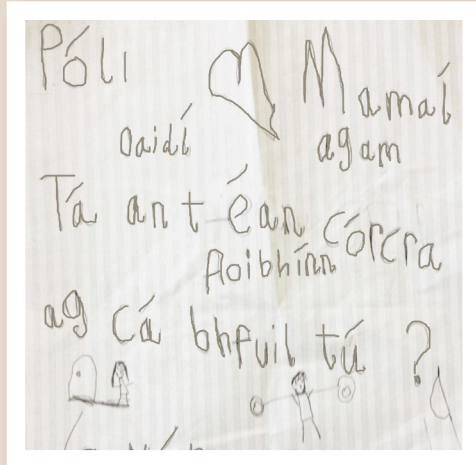 Póli Mamaí
Daidí agam
Tá an t éan córcra
Aoibhínn
ag cá bhfuil tú ?